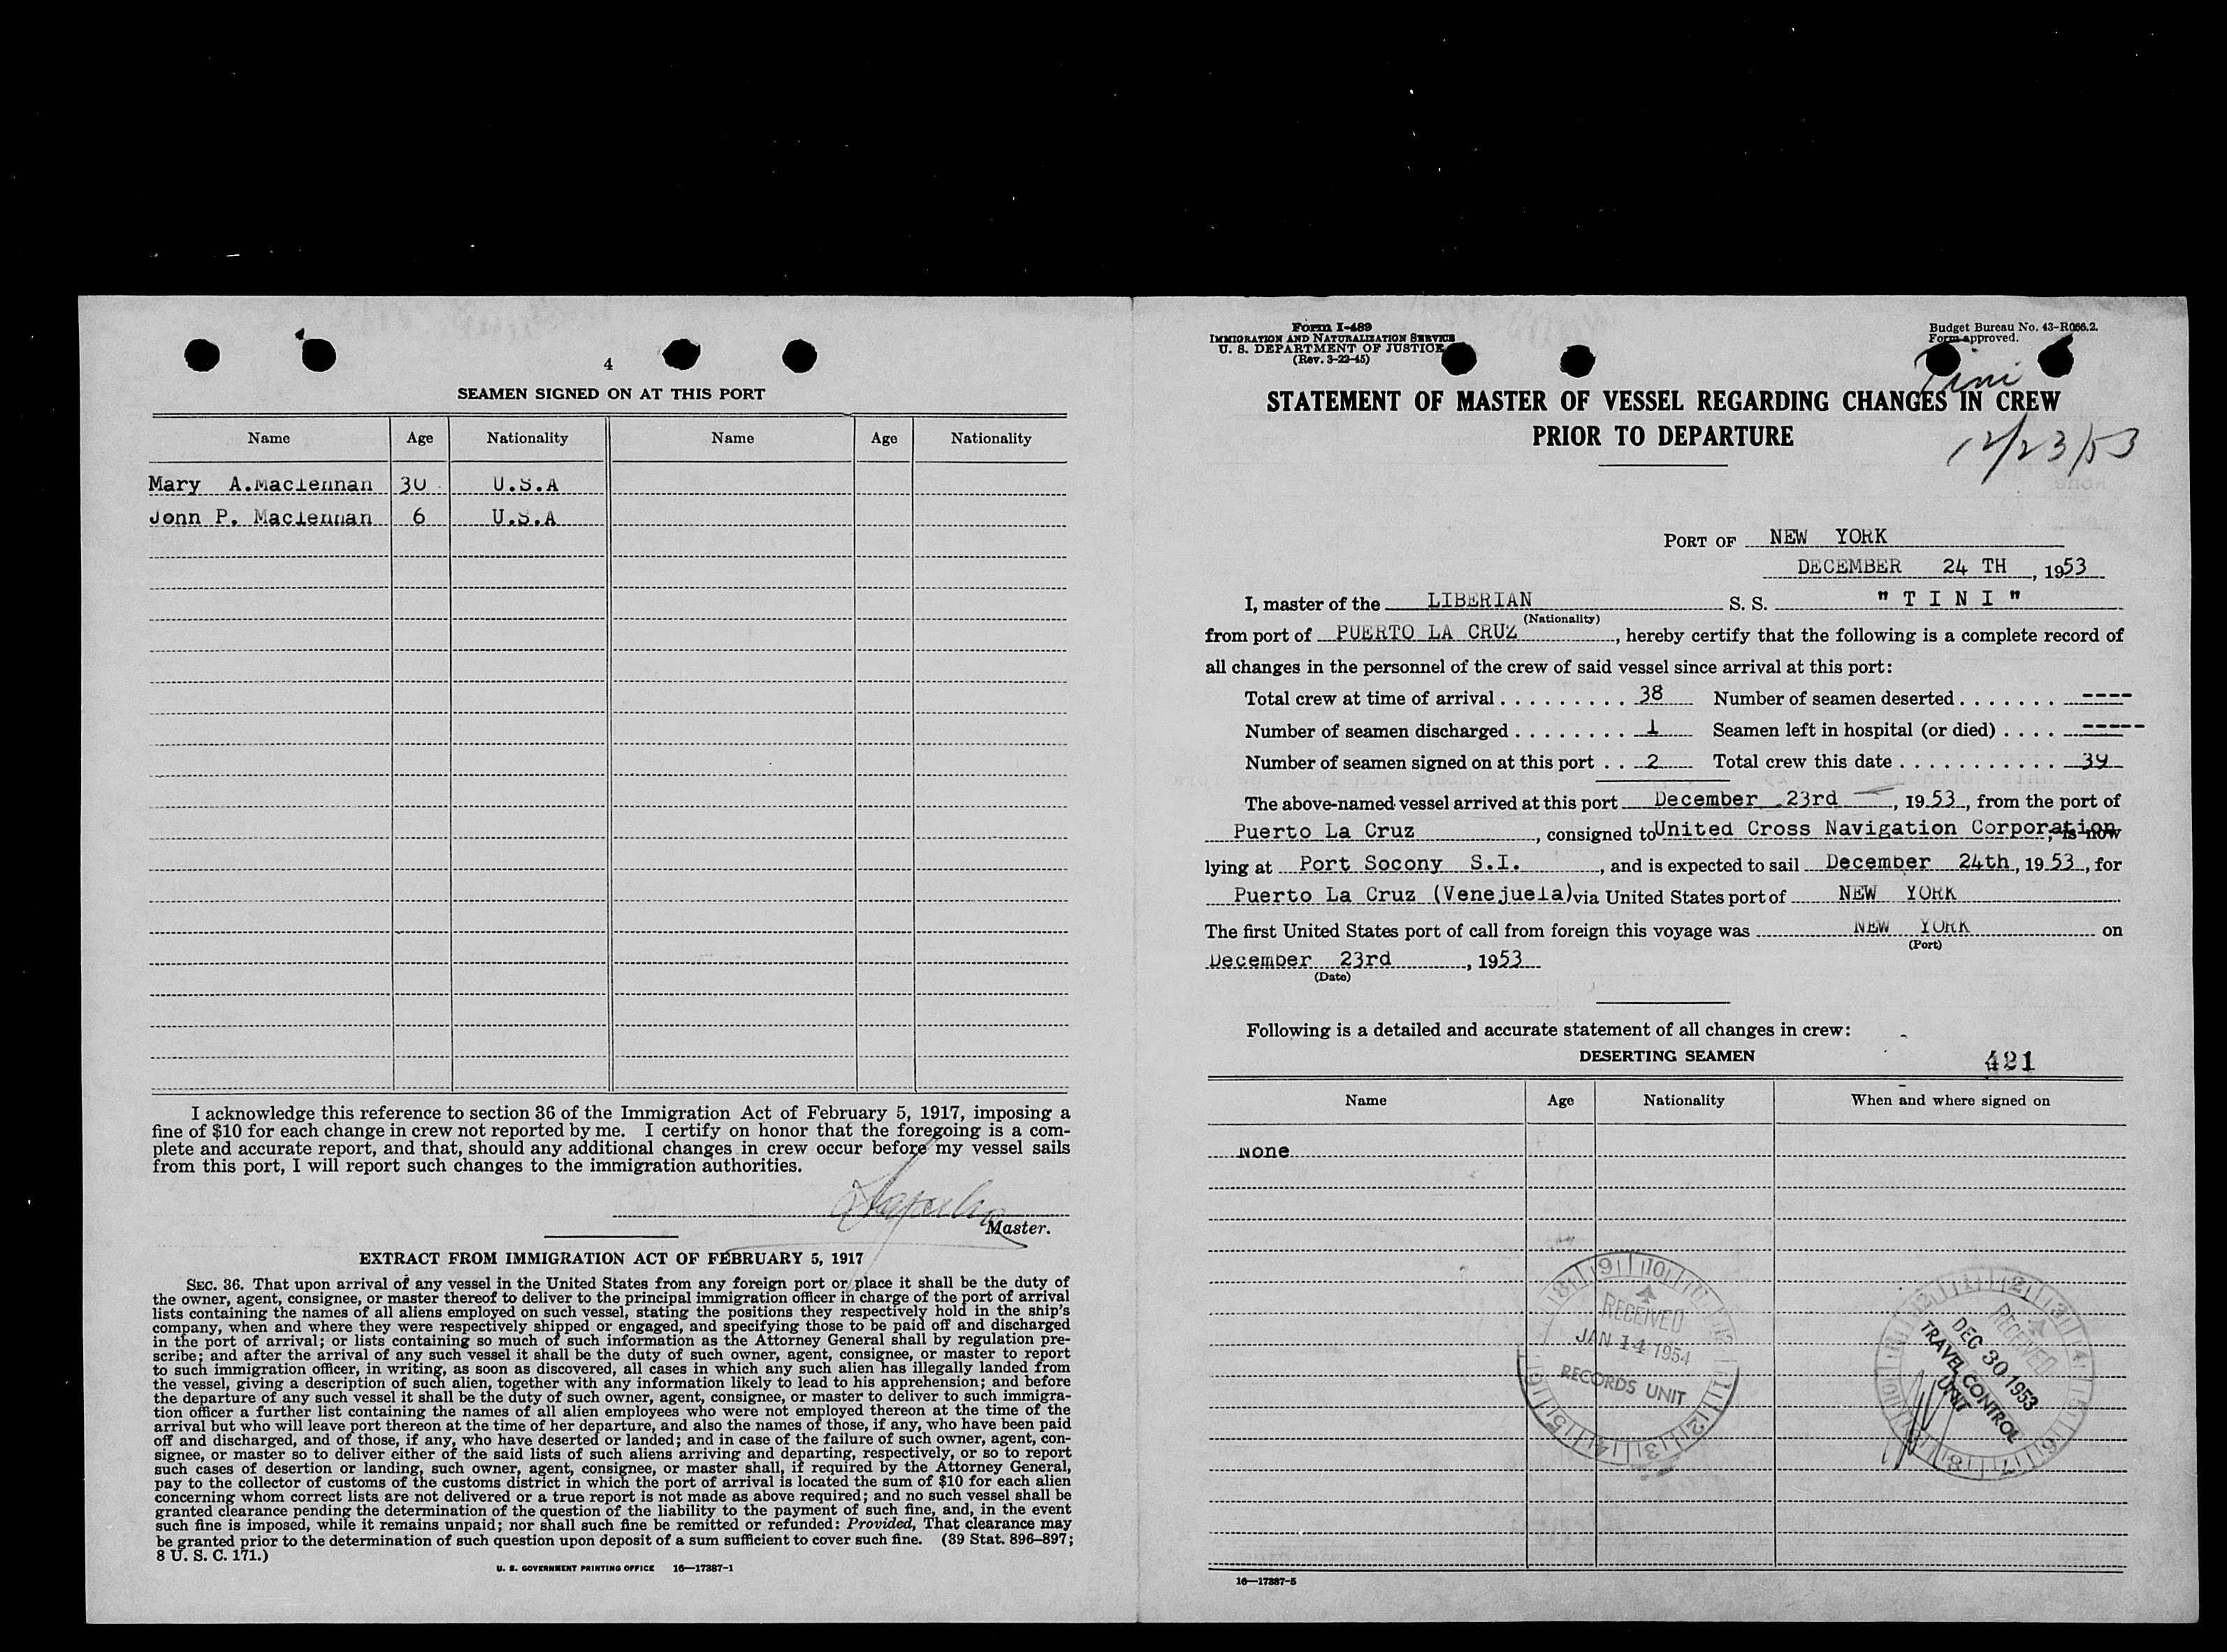 4
SEAMEN SIGNED ON AT THIS PORT
Name Age Nationality Name Age Nationality
Mary A.Maclennan 30 U.S.A
John P. Maclennan 6 U.S.A
I acknowledge this reference to section 36 of the Immigration Act of February 5, 1917, imposing a
fine of $10 for each change in crew not reported by me. I certify on honor that the foregoing is a com-
plete and accurate report, and that, should any additional changes in crew occur before my vessel sails
from this port, I will report such changes to the immigration authorities.
Master.
EXTRACT FROM IMMIGRATION ACT OF FEBRUARY 5, 1917
SEC. 36. That upon arrival of any vessel in the United States from any foreign port or place it shall be the duty of
the owner, agent, consignee, or master thereof to deliver to the principal immigration officer in charge of the port of arrival
lists containing the names of all aliens employed on such vessel, stating the positions they respectively hold in the ship's
company, when and where they were respectively shipped or engaged, and specifying those to be paid off and discharged
in the port of arrival; or lists containing so much of such information as the Attorney General shall by regulation pre-
scribe; and after the arrival of any such vessel it shall be the duty of such owner, agent, consignee, or master to report
to such immigration officer, in writing, as soon as discovered, all cases in which any such alien has illegally landed from
the vessel, giving a description of such alien, together with any information likely to lead to his apprehension; and before
the departure of any such vessel it shall be the duty of such owner, agent, consignee, or master to deliver to such immigra-
tion officer a further list containing the names of all alien employees who were not employed thereon at the time of the
arrival but who will leave port thereon at the time of her departure, and also the names of those, if any, who have been paid
off and discharged, and of those, if any, who have deserted or landed; and in case of the failure of such owner, agent, con-
signee, or master so to deliver either of the said lists of such aliens arriving and departing, respectively, or so to report
such cases of desertion or landing, such owner, agent, consignee, or master shall, if required by the Attorney General,
pay to the collector of customs of the customs district in which the port of arrival is located the sum of $10 for each alien
concerning whom correct lists are not delivered or a true report is not made as above required; and no such vessel shall be
granted clearance pending the determination of the question of the liability to the payment of such fine, and, in the event
such fine is imposed, while it remains unpaid; nor shall such fine be remitted or refunded: Provided, That clearance may
be granted prior to the determination of such question upon deposit of a sum sufficient to cover such fine. (39 Stat. 896–897;
8 U. S. C. 171.)
U. S. GOVERNMENT PRINTING OFFICE 16—17387-1
Form I-489
IMMIGRATION AND NATURALIZATION SERVICE
U. S. DEPARTMENT OF JUSTICE
(Rev. 3-22-45)
Budget Bureau No. 43-R066.2.
Form approved.
Tini
STATEMENT OF MASTER OF VESSEL REGARDING CHANGES IN CREW
PRIOR TO DEPARTURE
12/23/53
PORT OF NEW YORK
DECEMBER 24 TH, 1953
I, master of the LIBERIAN S. S. " T I N I "
(Nationality)
from port of PUERTO LA CRUZ, hereby certify that the following is a complete record of
all changes in the personnel of the crew of said vessel since arrival at this port:
Total crew at time of arrival . . . . . . . . . 38 Number of seamen deserted . . . . . . . ----
Number of seamen discharged . . . . . . . . 1 Seamen left in hospital (or died) . . . . -----
Number of seamen signed on at this port . . 2 Total crew this date . . . . . . . . . . . 39
The above-named vessel arrived at this port December 23rd, 1953, from the port of
Puerto La Cruz, consigned to United Cross Navigation Corporation, is now
lying at Port Socony S.I., and is expected to sail December 24th, 1953, for
Puerto La Cruz (Venejuela) via United States port of NEW YORK
The first United States port of call from foreign this voyage was NEW YORK on
(Port)
December 23rd, 1953
(Date)
Following is a detailed and accurate statement of all changes in crew:
DESERTING SEAMEN
421
Name Age Nationality When and where signed on
None
RECEIVED
JAN 14 1954
RECORDS UNIT
RECEIVED
DEC 30 1953
TRAVEL CONTROL
UNIT
16—17387-5